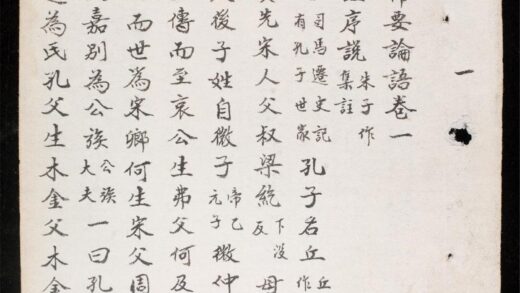 一
要論語卷一
序說朱子作集註
司馬遷史記有孔子世家孔子名丘丘作
先宋人父叔梁紇下没反母
後子姓自微子帝乙元子微仲
傳而至哀公生弗父何及
而世為宋卿何生宋父周
嘉別為公族公族大夫一曰孔
為氏孔父生木金父木金